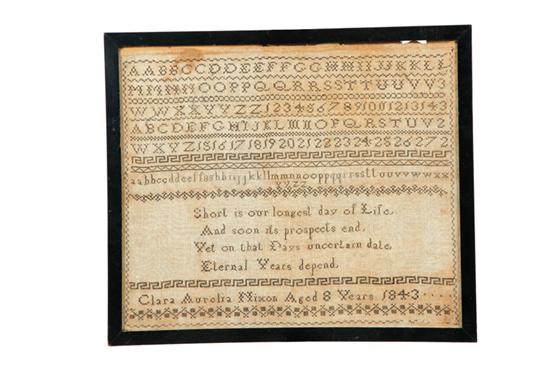 AABBCCDDEEFFGGHHIIJJKKLL
MMNNOOPPQQRRSSTTUUVV3
WWXXYYZZ1234567891011121343
ABCDEFGHIJKLMNOPQRSTUVZ
WXYZ151617181920212223242526272
aabbccddeeffgghhiijjkkllmmnnooppqqrrssttuuvvwwxx
yyzz
Short is our longest day of Life,
And soon its prospects end,
Yet on that Days uncertain date,
Eternal Years depend,
Clara Aurelia Nixon Aged 8 Years 1843